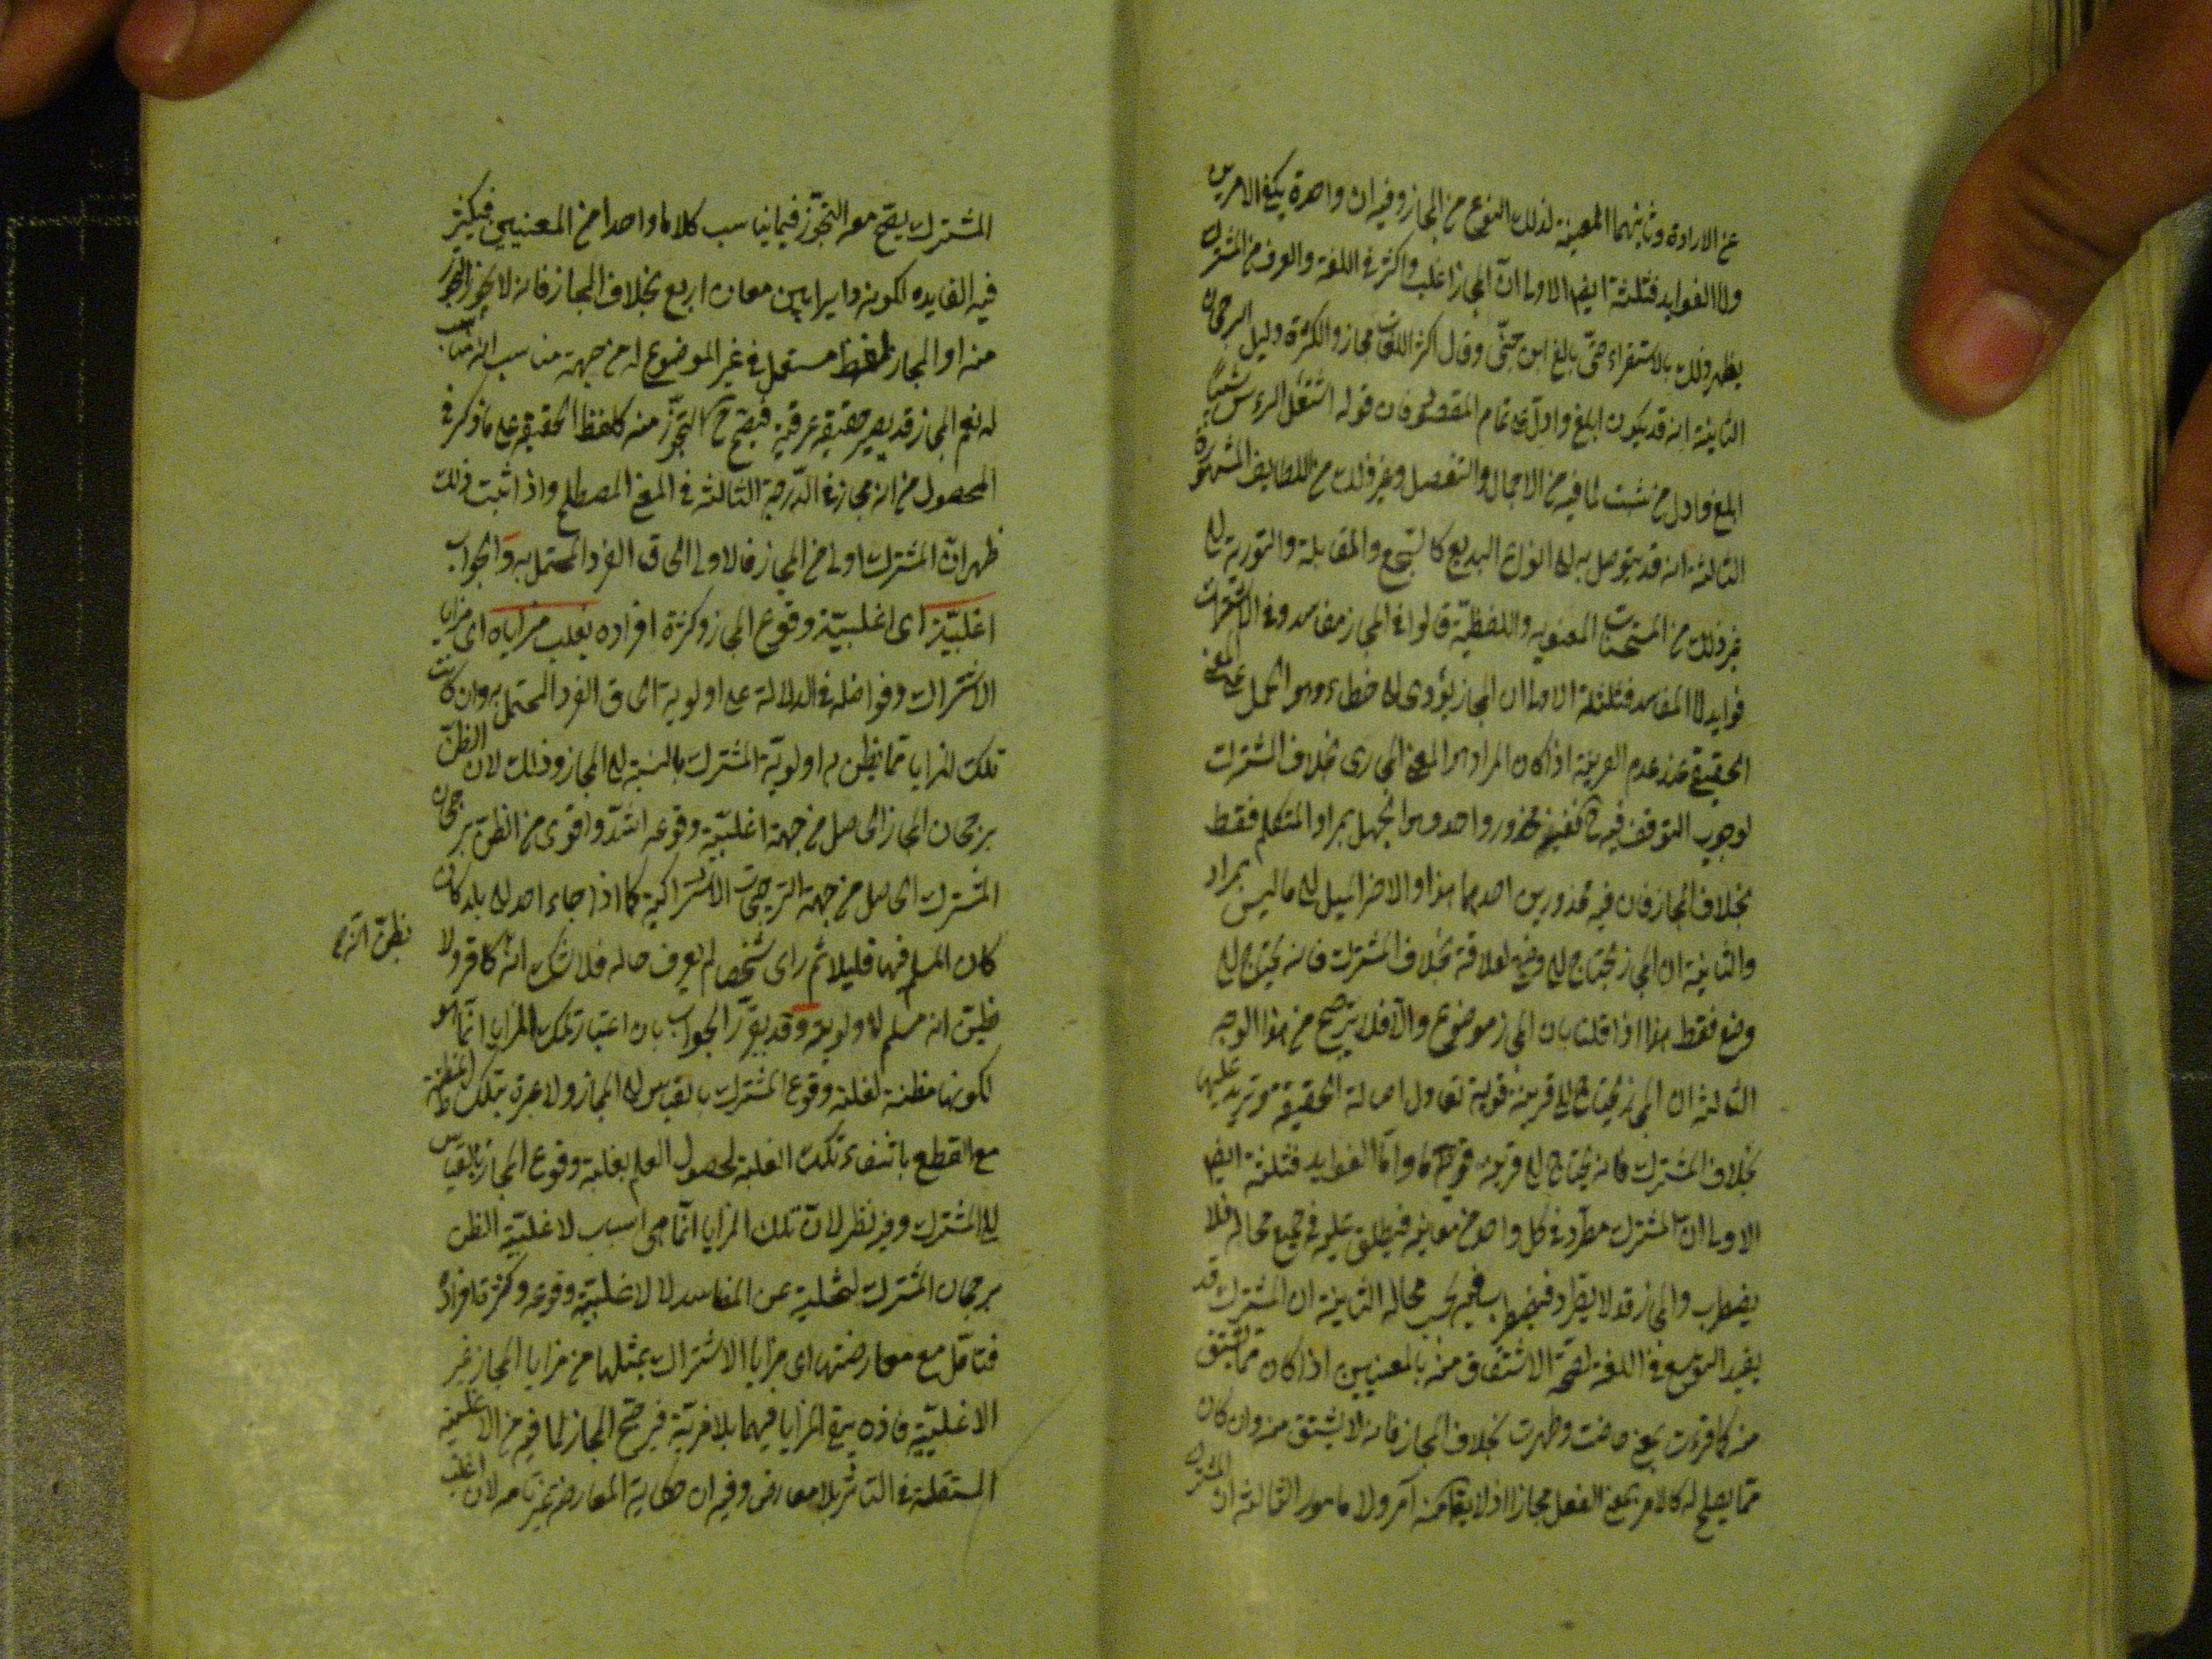 عن الارادة وثانيهما المعينة لذلك النوع من المجاز وفيه ان واحدة يكفي الامرين
واما الفوايد فثلثة ايضا الاولى ان المجاز اغلب واكثر في اللغة والعرف من المشترك
يظهر ذلك بالاستقراء حتى بالغ ابن جنى وقال اكثر اللغات مجاز والكثرة دليل الرجحان
الثانية انه قد يكون ابلغ وادل على تمام المقصود فان قوله اشتعل الرءس شيبا
ابلغ وادل من شبت لما فيه من الاجمال والتفصيل وغير ذلك من اللطايف المشهورة
الثالثة انه قد يتوصل به الى انواع البديع كالسجع والمقابلة والتورية الى
غير ذلك من المستحسنات المعنويه واللفظية قالوا في المجاز مفاسد وفي الاشتراك
فوايد اما المفاسد فثلثة الاولى ان المجاز يؤدى الى خطاء وهو الحمل على المعنى
الحقيقي عند عدم القرينة اذا كان المراد هو المعنى المجازى بخلاف المشترك
لوجوب التوقف فيه ح ففيه محذور واحد وهو الجهل بمراد المتكلم فقط
بخلاف المجاز فان فيه محذورين احدهما هذا والاخر الميل الى ما ليس بمراد
والثانية ان المجاز يحتاج الى وضع لعلاقة بخلاف المشترك فانه يحتاج الى
وضع فقط هذا اذا قلنا بان المجاز موضوع والا فلا يترجح من هذا الوجه
الثالثة ان المجاز يحتاج الى قرينة قوية تعادل اصالة الحقيقة وتزيد عليها
بخلاف المشترك فانه يحتاج الى قرينة واما الفوايد فثلثة ايضا
الاولى ان المشترك مطرد في كل واحد من معانيه فيطلق عليه في جميع محاله فلا
يضطرب والمجاز قد لا يطرد فيضطرب بحسب محاله الثانية ان المشترك قد
يفيد التوسع في اللغة لصحة الاشتقاق منه بالمعنيين اذا كان مما يشتق
منه كاقرءت بمعنى حاضت وطهرت بخلاف المجاز فانه لا يشتق منه وان كان
مما يصلح له كالامر بمعنى الفعل مجازا اذ لا يقال منه آمر ولا مامور الثالثة ان المشترك
المشترك يصح معه التجوز فيما يناسب كلا واحدا من المعنيين فيكثر
فيه الفايده لكونه دايرا بين معان اربع بخلاف المجاز فانه لا يجوز التجوز
منه او المجاز لفظ مستعمل في غير الموضوع له من جهة مناسبته
له نعم المجاز قد يصير حقيقة عرفية فيصح ح التجوز منه كلفظ الحقيقة على ما ذكر في
المحصول من انه مجاز في الدرجة الثالثة في المعنى المصطلح واذا ثبت ذلك
ظهر ان المشترك اولى من المجاز فالاولى الحاق الفرد المحتمل به والجواب
اغلبية اى اغلبية وقوع المجاز وكثرة افراده يغلب مزاياه اى مزايا
الاشتراك وفواضله في الدلالة على اولوية الحاق الفرد المحتمل به وان كانت
تلك المزايا مما يظن به اولوية المشترك بالنسبة الى المجاز وذلك لان الظن
برجحان المجاز الحاصل من جهة اغلبية وقوعه اشد واقوى من الظن برجحان
المشترك الحاصل من جهة الترجيحات الاشتراكية كما اذا جاء احد الى بلد كان
كان المسلم فيها قليلا ثم راى شخصا لم يعرف حاله فلا شك انه كافر ولا
يظن انه مسلم وقد يقرر الجواب بان اعتبار تلك المزايا انما هو
لكونها مظنة لغلبة وقوع المشترك بالقياس الى المجاز ولا عبرة بتلك المظنة
مع القطع بانتفاء تلك الغلبة لحصول العلم بغلبة وقوع المجاز بالقياس
الى المشترك وفيه نظر لان تلك المزايا انما هى اسباب لاغلبية الظن
برجحان المشترك لتخليه عن المفاسد لا لاغلبية وقوعه وكثرة افراده
فتامل مع معارضتها اى مزايا الاشتراك بمثلها من مزايا المجاز غير
الاغلبية فاذن يبقى المزايا فيهما بلا مزية فيرجح المجاز لما فيه من الاغلبية
المستقلة في التاثير بلا معارض وفيه ان حكاية المعارضة غير تامه لان اغلب